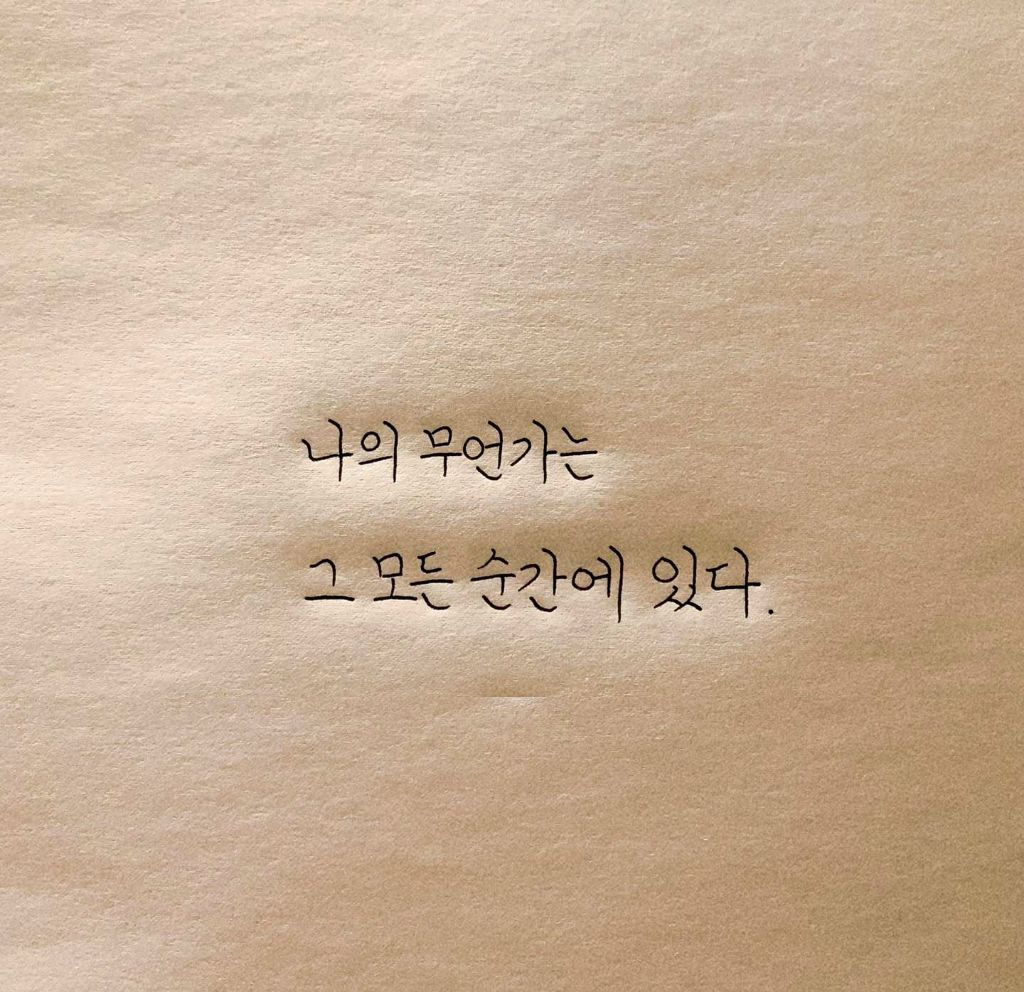 나의 무언가는
그 모든 순간에 있다.